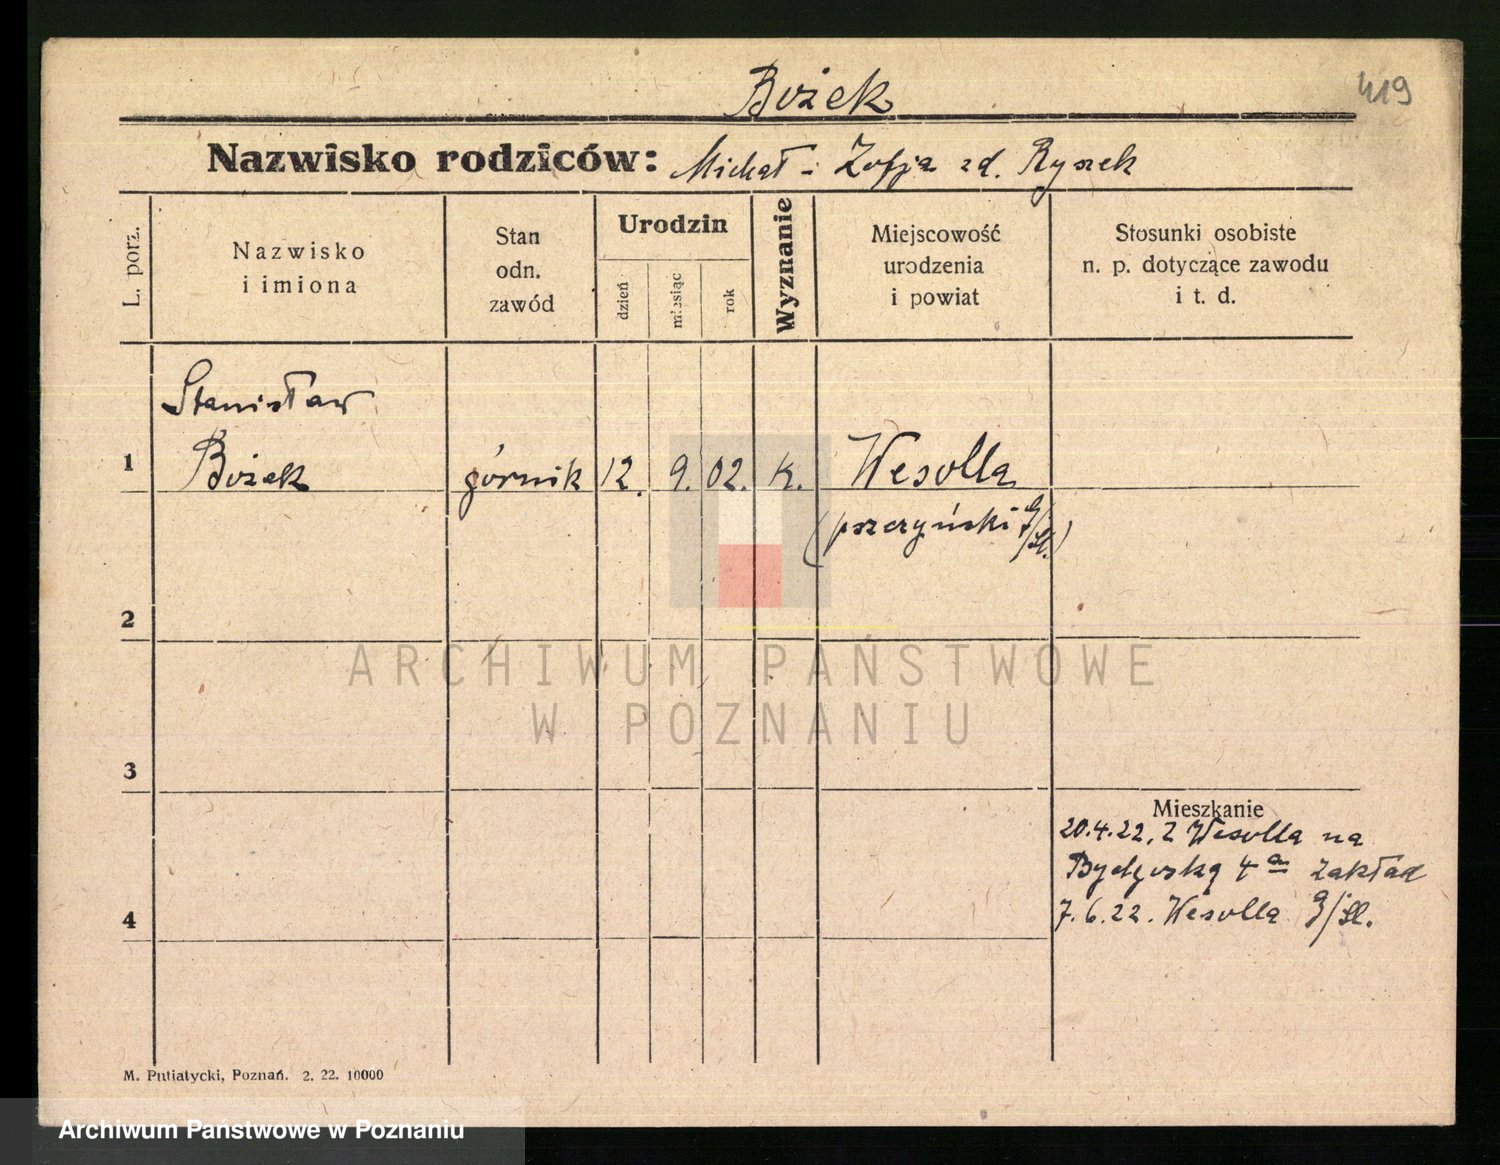 Bożek
419
Nazwisko rodziców: Michał i Zofja zd. Ryszek
L. porz.
Nazwisko
i imiona
Stan
odn.
zawód
Urodzin
dzień
miesiąc
rok
Wyznanie
Miejscowość
urodzenia
i powiat
Stosunki osobiste
n. p. dotyczące zawodu
i t. d.
Stanisław
1 Bożek górnik 12. 9. 02. K. Wesolla
(pszczyński G/Śl.)
2
ARCHIWUM PAŃSTWOWE
W POZNANIU
3
Mieszkanie
20.4.22. Z Wesolla na
Bydgoską 4a Zakład
7.6.22. Wesolla G/Śl.
4
M. Putiatycki, Poznań. 2. 22. 10000
Archiwum Państwowe w Poznaniu